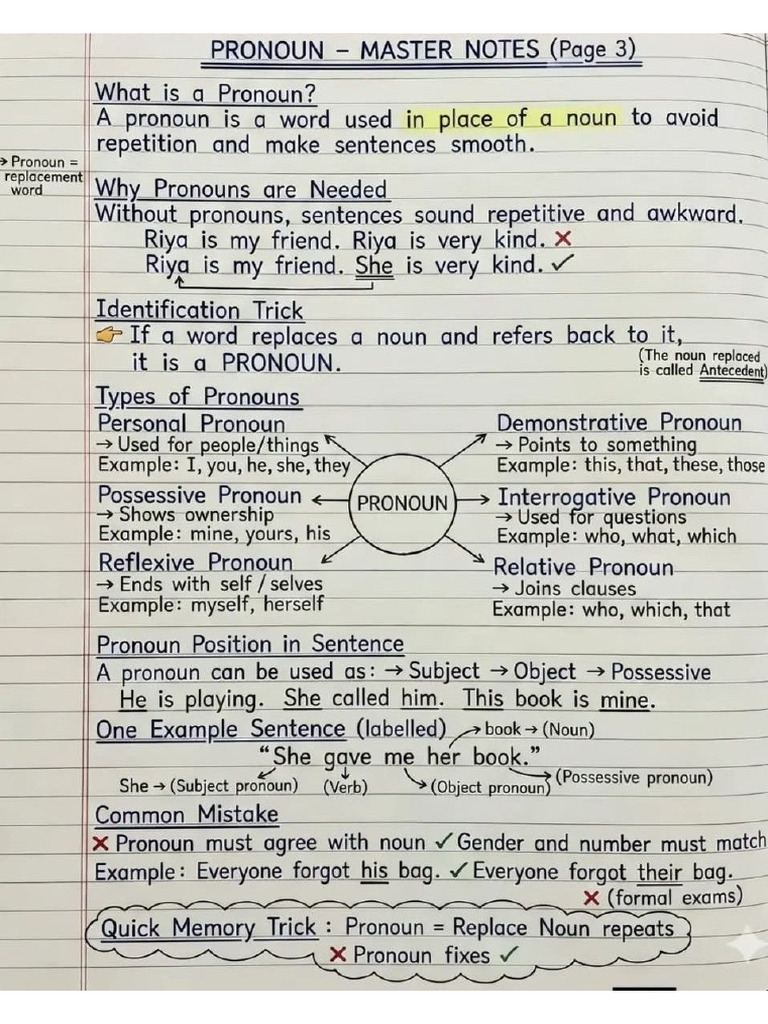 PRONOUN – MASTER NOTES (Page 3)
What is a Pronoun?
A pronoun is a word used in place of a noun to avoid
repetition and make sentences smooth.
→ Pronoun =
replacement
word
Why Pronouns are Needed
Without pronouns, sentences sound repetitive and awkward.
Riya is my friend. Riya is very kind. ✗
Riya is my friend. She is very kind. ✓
Identification Trick
👉 If a word replaces a noun and refers back to it,
it is a PRONOUN.
(The noun replaced
is called Antecedent)
Types of Pronouns
Personal Pronoun
→ Used for people/things
Example: I, you, he, she, they
Possessive Pronoun
→ Shows ownership
Example: mine, yours, his
Reflexive Pronoun
→ Ends with self / selves
Example: myself, herself
PRONOUN
Demonstrative Pronoun
→ Points to something
Example: this, that, these, those
Interrogative Pronoun
→ Used for questions
Example: who, what, which
Relative Pronoun
→ Joins clauses
Example: who, which, that
Pronoun Position in Sentence
A pronoun can be used as: → Subject → Object → Possessive
He is playing. She called him. This book is mine.
One Example Sentence (labelled) → book → (Noun)
“She gave me her book.”
She → (Subject pronoun) (Verb) (Object pronoun) (Possessive pronoun)
Common Mistake
✗ Pronoun must agree with noun ✓ Gender and number must match
Example: Everyone forgot his bag. ✓ Everyone forgot their bag.
✗ (formal exams)
Quick Memory Trick : Pronoun = Replace Noun repeats
✗ Pronoun fixes ✓